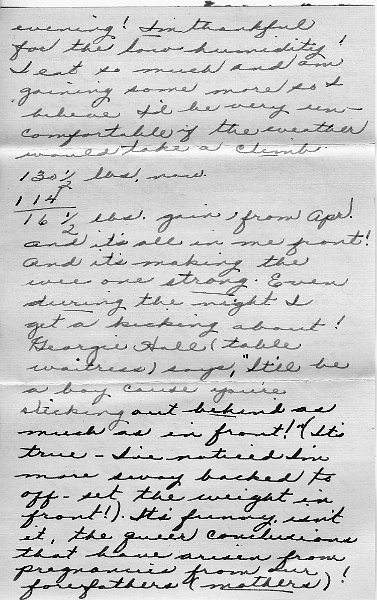 evening! I'm thankful
for the low humidity!
I eat so much and am
gaining some more so I
believe I'd be very un-
comfortable if the weather
would take a climb.
130 1/2 lbs. now.
114
16 1/2 lbs. gain, from Apr!
and it's all in me front!
And it's making the
wee one strong. Even
during the night I
get a kicking about!
Georgie Hall (table
waitress) says, "It'll be
a boy cause you're
sticking out behind as
much as in front!" (It's
true - I've noticed I'm
more sway backed to
off-set the weight in
front!). It's funny, isn't
it, the queer conclusions
that have arisen from
pregnancies from our
forefathers (mothers)!